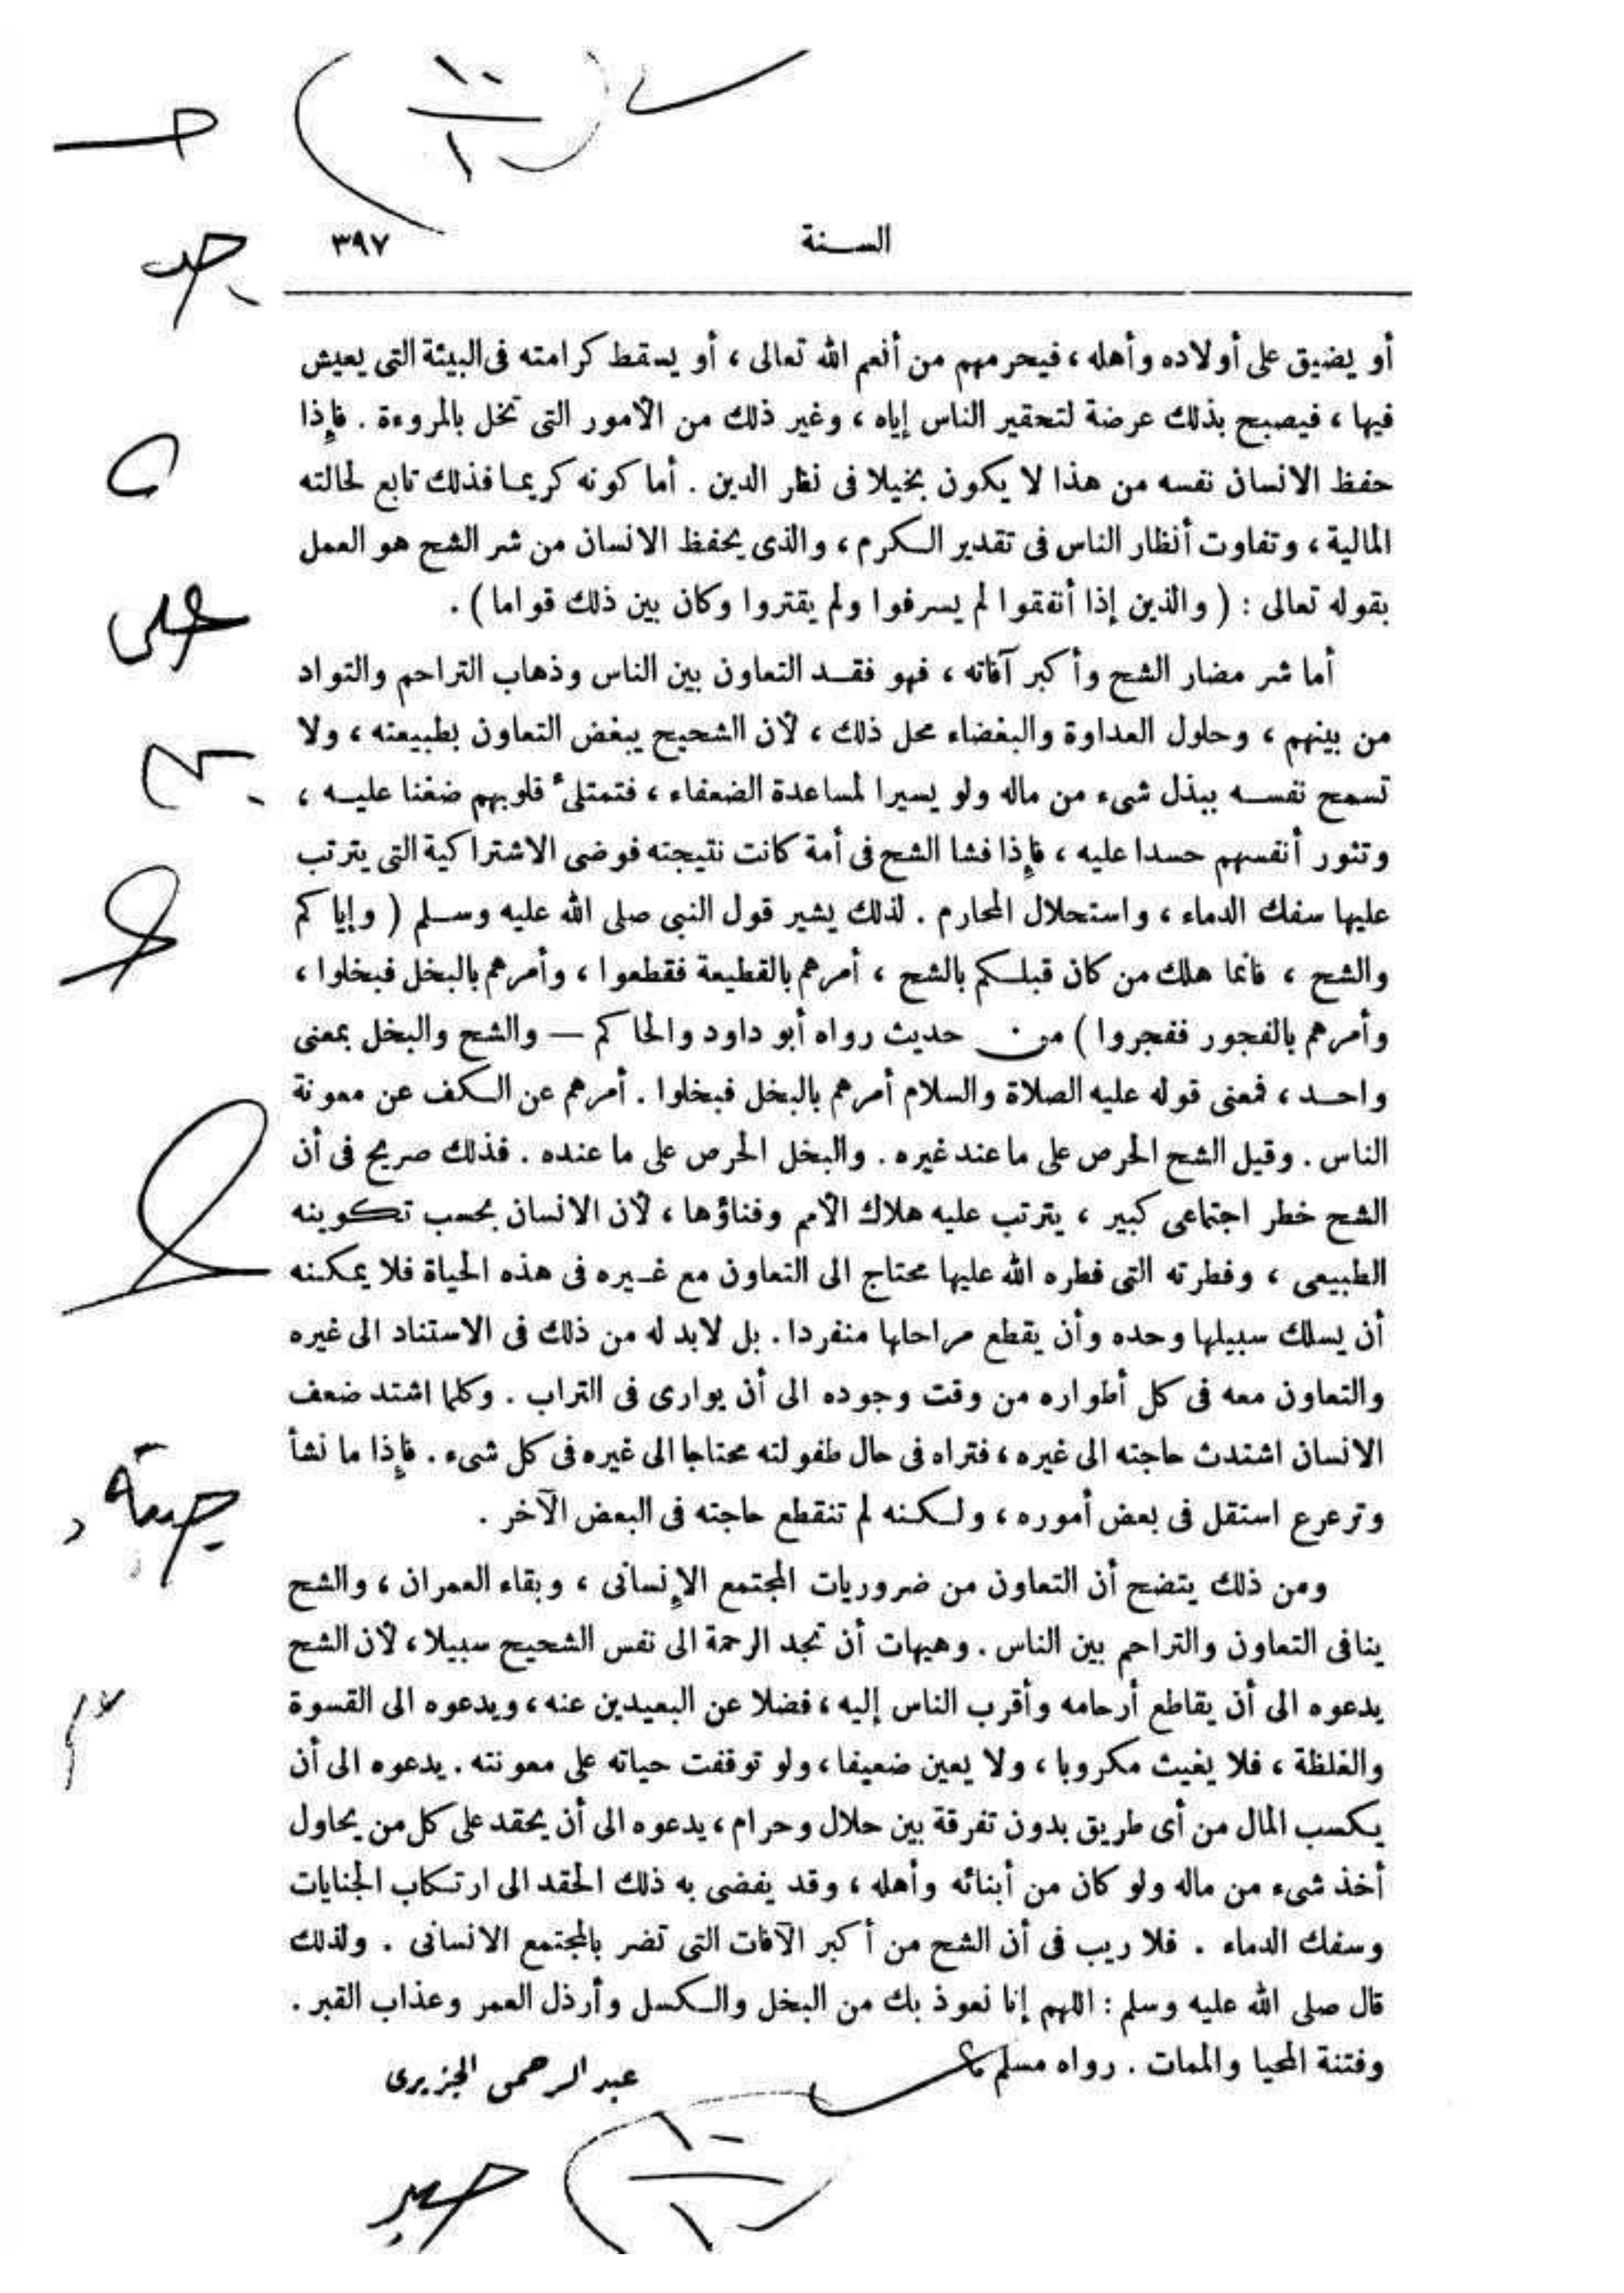 السنة
٣٩٧
أو يضيق على أولاده وأهله ، فيحرمهم من أنعم الله تعالى ، أو يسقط كرامته فى البيئة التى يعيش
فيها ، فيصبح بذلك عرضة لتحقير الناس إياه ، وغير ذلك من الأمور التى تخل بالمروءة . فإذا
حفظ الانسان نفسه من هذا لا يكون بخيلا فى نظر الدين . أما كونه كريما فذلك تابع لحالته
المالية ، وتفاوت أنظار الناس فى تقدير الكرم ، والذى يحفظ الانسان من شر الشح هو العمل
بقوله تعالى : ( والذين إذا أنفقوا لم يسرفوا ولم يقتروا وكان بين ذلك قواما ) .
أما شر مضار الشح وأكبر آفاته ، فهو فقد التعاون بين الناس وذهاب التراحم والتواد
من بينهم ، وحلول العداوة والبغضاء محل ذلك ، لأن الشحيح يبغض التعاون بطبيعته ، ولا
تسمح نفسه ببذل شىء من ماله ولو يسيرا لمساعدة الضعفاء ، فتمتلئ قلوبهم ضغنا عليه ،
وتثور أنفسهم حسدا عليه ، فإذا فشا الشح فى أمة كانت نتيجته فوضى الاشتراكية التى يترتب
عليها سفك الدماء ، واستحلال المحارم . لذلك يشير قول النبى صلى الله عليه وسلم ( وإياكم
والشح ، فانما هلك من كان قبلكم بالشح ، أمرهم بالقطيعة فقطعوا ، وأمرهم بالبخل فبخلوا ،
وأمرهم بالفجور ففجروا ) من حديث رواه أبو داود والحاكم — والشح والبخل بمعنى
واحد ، فمعنى قوله عليه الصلاة والسلام أمرهم بالبخل فبخلوا . أمرهم عن الكف عن معونة
الناس . وقيل الشح الحرص على ما عند غيره . والبخل الحرص على ما عنده . فذلك صريح فى أن
الشح خطر اجتماعى كبير ، يترتب عليه هلاك الأمم وفناؤها ، لأن الانسان بحسب تكوينه
الطبيعى ، وفطرته التى فطره الله عليها محتاج الى التعاون مع غيره فى هذه الحياة فلا يمكنه
أن يسلك سبيلها وحده وأن يقطع مراحلها منفردا . بل لابد له من ذلك فى الاستناد الى غيره
والتعاون معه فى كل أطواره من وقت وجوده الى أن يوارى فى التراب . وكلما اشتد ضعف
الانسان اشتدت حاجته الى غيره ، فتراه فى حال طفولته محتاجا الى غيره فى كل شىء . فإذا ما نشأ
وترعرع استقل فى بعض أموره ، ولكنه لم تنقطع حاجته فى البعض الآخر .
ومن ذلك يتضح أن التعاون من ضروريات المجتمع الإنسانى ، وبقاء العمران ، والشح
ينافى التعاون والتراحم بين الناس . وهيهات أن تجد الرحمة الى نفس الشحيح سبيلا ، لأن الشح
يدعوه الى أن يقاطع أرحامه وأقرب الناس إليه ، فضلا عن البعيدين عنه ، ويدعوه الى القسوة
والغلظة ، فلا يغيث مكروبا ، ولا يعين ضعيفا ، ولو توقفت حياته على معونته . يدعوه الى أن
يكسب المال من أى طريق بدون تفرقة بين حلال وحرام ، يدعوه الى أن يحقد على كل من يحاول
أخذ شىء من ماله ولو كان من أبنائه وأهله ، وقد يفضى به ذلك الحقد الى ارتكاب الجنايات
وسفك الدماء . فلا ريب فى أن الشح من أكبر الآفات التى تضر بالمجتمع الانسانى . ولذلك
قال صلى الله عليه وسلم : اللهم إنا نعوذ بك من البخل والكسل وأرذل العمر وعذاب القبر .
وفتنة المحيا والممات . رواه مسلم
عبد الرحمن الجزيرى